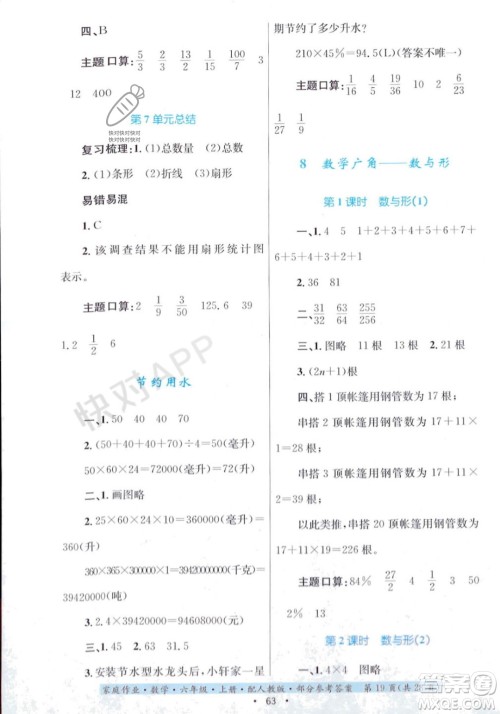 四、B
主题口算：5/3 2/3 3/10 15/2 100/7 3
12 400
第7单元总结
复习梳理：1.（1）总数量 （2）总数
2.（1）条形 （2）折线 （3）扇形
易错易混
1. C
2. 该调查结果不能用扇形统计图
表示。
主题口算：2 1/9 3/50 125.6 39
1.2 1/2 6
节约用水
一、1. 50 40 40 70
2.（50+40+40+70）÷4=50（毫升）
50×60×24=72000（毫升）=72（升）
二、1. 画图略
2. 25×60×24×10=360000（毫升）=
360（升）
360×1×365×300000÷1000=39420000（千克）=
39420（吨）
三、1. 45 31.5
2. 39420000÷(5×1)=19608000（户）
3. 安装节水型水龙头后小轩家一星
期节约了多少升水？
210×45%=94.5（L）（答案不唯一）
主题口算：36 16 10 2 6/23
1/27 9
8 数学广角——数与形
第1课时 数与形(1)
一、1. 4 5 1+2+3+4+5+6+
7+6+5+4+3+2+1
2. 36 81
二、31/32 63/64 255/256
三、1. 图略
2.（2n+1）根
四、1顶帐篷用钢管数为17根；
串搭2顶帐篷用钢管数为17+11=
28根；
串搭3顶帐篷用钢管数为17+11×
2=39根；
以此类推，串搭20顶帐篷用钢管数为
17+11×19=226根。
主题口算：84% 27/2 4 3 50
第2课时 数与形(2)
一、1. 4×4 图略
家庭作业·数学·六年级·上册·配人教版·部分参考答案 第19页(共2
63
快对APP
快对快对快对
快对快对快对